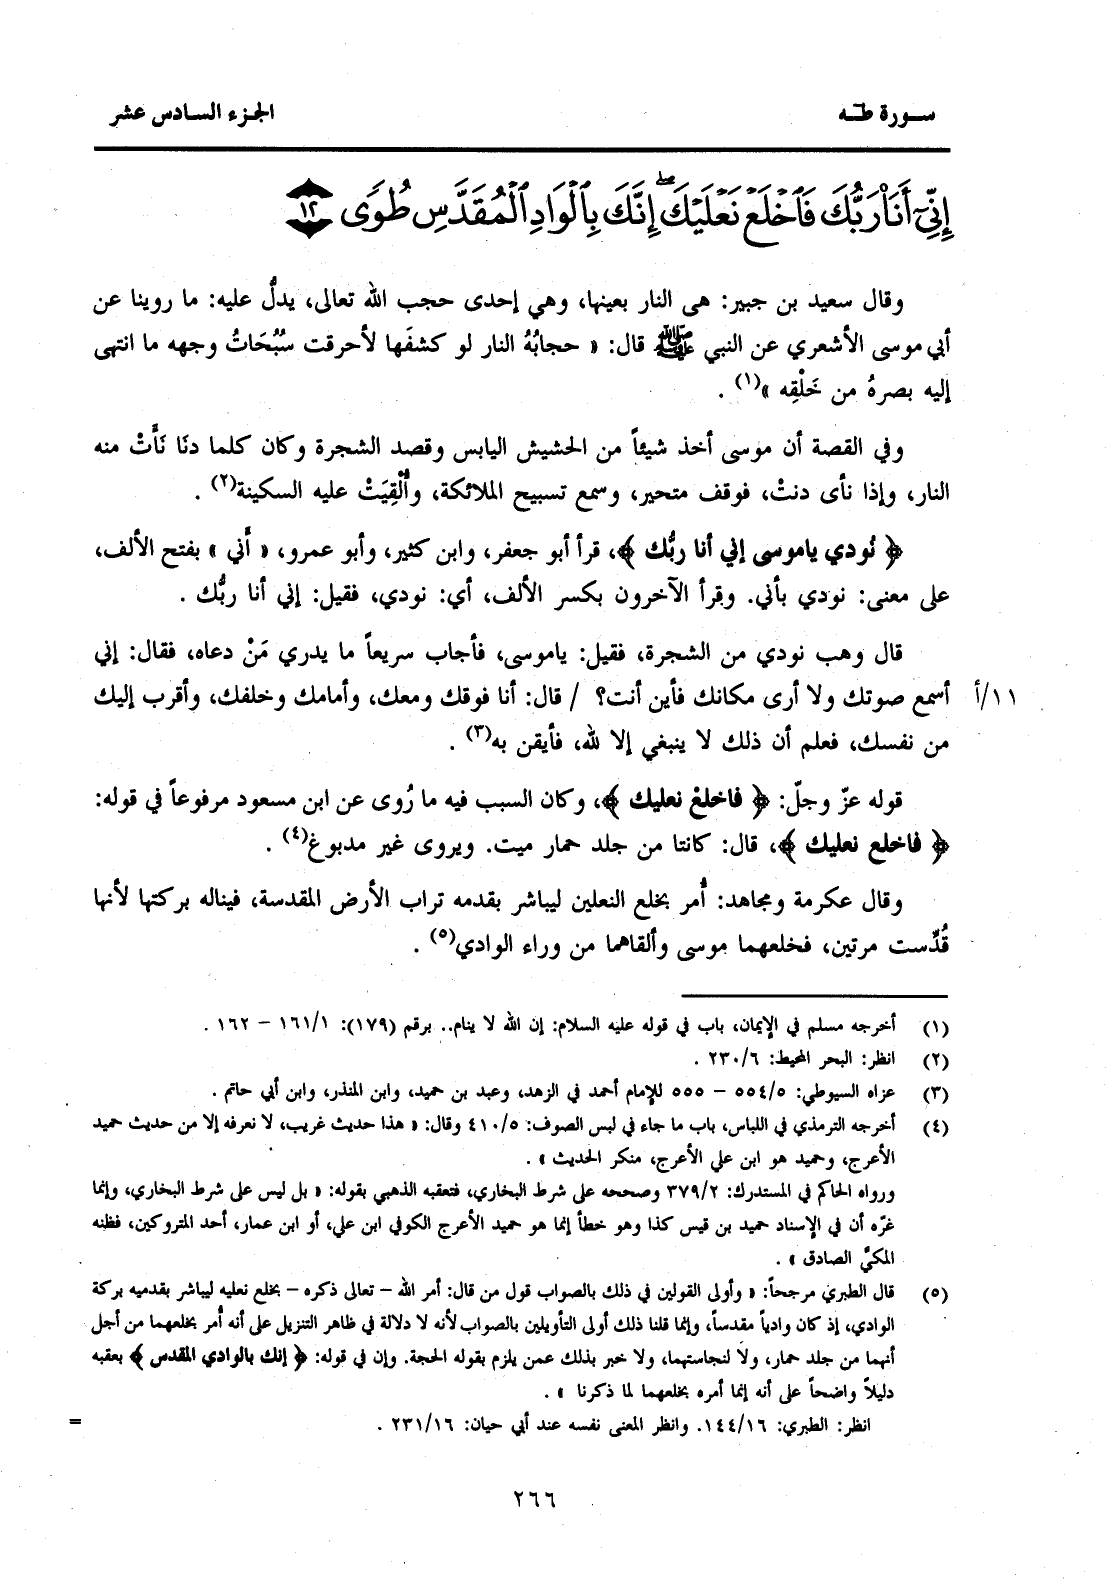 سورة طه
الجزء السادس عشر
إِنِّىٓ أَنَا۠ رَبُّكَ فَٱخْلَعْ نَعْلَيْكَ ۖ إِنَّكَ بِٱلْوَادِ ٱلْمُقَدَّسِ طُوًى ١٢
وقال سعيد بن جبير: هى النار بعينها، وهي إحدى حجب الله تعالى، يدلُّ عليه: ما روينا عن
أبي موسى الأشعري عن النبي ﷺ قال: « حجابُهُ النار لو كشفَها لأحرقت سُبُحَاتُ وجهه ما انتهى
إليه بصرهُ من خَلْقِه »(١) .
وفي القصة أن موسى أخذ شيئاً من الحشيش اليابس وقصد الشجرة وكان كلما دنَا نَأَتْ منه
النار، وإذا نأى دنتْ، فوقف متحير، وسمع تسبيح الملائكة، وأُلْقِيَتْ عليه السكينة(٢) .
﴿ نُودي ياموسى إني أنا ربُّك ﴾، قرأ أبو جعفر، وابن كثير، وأبو عمرو، « أَني » بفتح الألف،
على معنى: نودي بأني. وقرأ الآخرون بكسر الألف، أي: نودي، فقيل: إني أنا ربُّك .
قال وهب نودي من الشجرة، فقيل: ياموسى، فأجاب سريعاً ما يدري مَنْ دعاه، فقال: إني
أسمع صوتك ولا أرى مكانك فأين أنت؟ / قال: أنا فوقك ومعك، وأمامك وخلفك، وأقرب إليك
١١/أ
من نفسك، فعلم أن ذلك لا ينبغي إلا لله، فأيقن به(٣) .
قوله عزّ وجلّ: ﴿ فاخلعْ نعليك ﴾، وكان السبب فيه ما رُوى عن ابن مسعود مرفوعاً في قوله:
﴿ فاخلع نعليك ﴾، قال: كانتا من جلد حمار ميت. ويروى غير مدبوغ(٤) .
وقال عكرمة ومجاهد: أُمر بخلع النعلين ليباشر بقدمه تراب الأرض المقدسة، فيناله بركتها لأنها
قُدِّست مرتين، فخلعهما موسى وألقاهما من وراء الوادي(٥) .
(١) أخرجه مسلم في الإيمان، باب في قوله عليه السلام: إن الله لا ينام.. برقم (١٧٩): ١٦١/١ – ١٦٢ .
(٢) انظر: البحر المحيط: ٢٣٠/٦ .
(٣) عزاه السيوطي: ٥٥٤/٥ – ٥٥٥ للإمام أحمد في الزهد، وعبد بن حميد، وابن المنذر، وابن أبي حاتم .
(٤) أخرجه الترمذي في اللباس، باب ما جاء في لبس الصوف: ٤١٠/٥ وقال: « هذا حديث غريب، لا نعرفه إلا من حديث حميد
الأعرج، وحميد هو ابن علي الأعرج، منكر الحديث » .
ورواه الحاكم في المستدرك: ٣٧٩/٢ وصححه على شرط البخاري، فتعقبه الذهبي بقوله: « بل ليس على شرط البخاري، وإنما
غرّه أن في الإسناد حميد بن قيس كذا وهو خطأ إنما هو حميد الأعرج الكوفي ابن علي، أو ابن عمار، أحد المتروكين، فظنه
المكيَّ الصادق » .
(٥) قال الطبري مرجحاً: « وأولى القولين في ذلك بالصواب قول من قال: أمر الله – تعالى ذكره – بخلع نعليه ليباشر بقدميه بركة
الوادي، إذ كان وادياً مقدساً، وإنما قلنا ذلك أولى التأويلين بالصواب لأنه لا دلالة في ظاهر التنزيل على أنه أُمر بخلعهما من أجل
أنهما من جلد حمار، ولا لنجاستهما، ولا خبر بذلك عمن يلزم بقوله الحجة. وإن في قوله: ﴿ إنك بالوادي المقدس ﴾ بعقبه
دليلاً واضحاً على أنه إنما أمره بخلعهما لما ذكرنا » .
انظر: الطبري: ١٤٤/١٦. وانظر المعنى نفسه عند أبي حيان: ٢٣١/١٦ .
=
٢٦٦